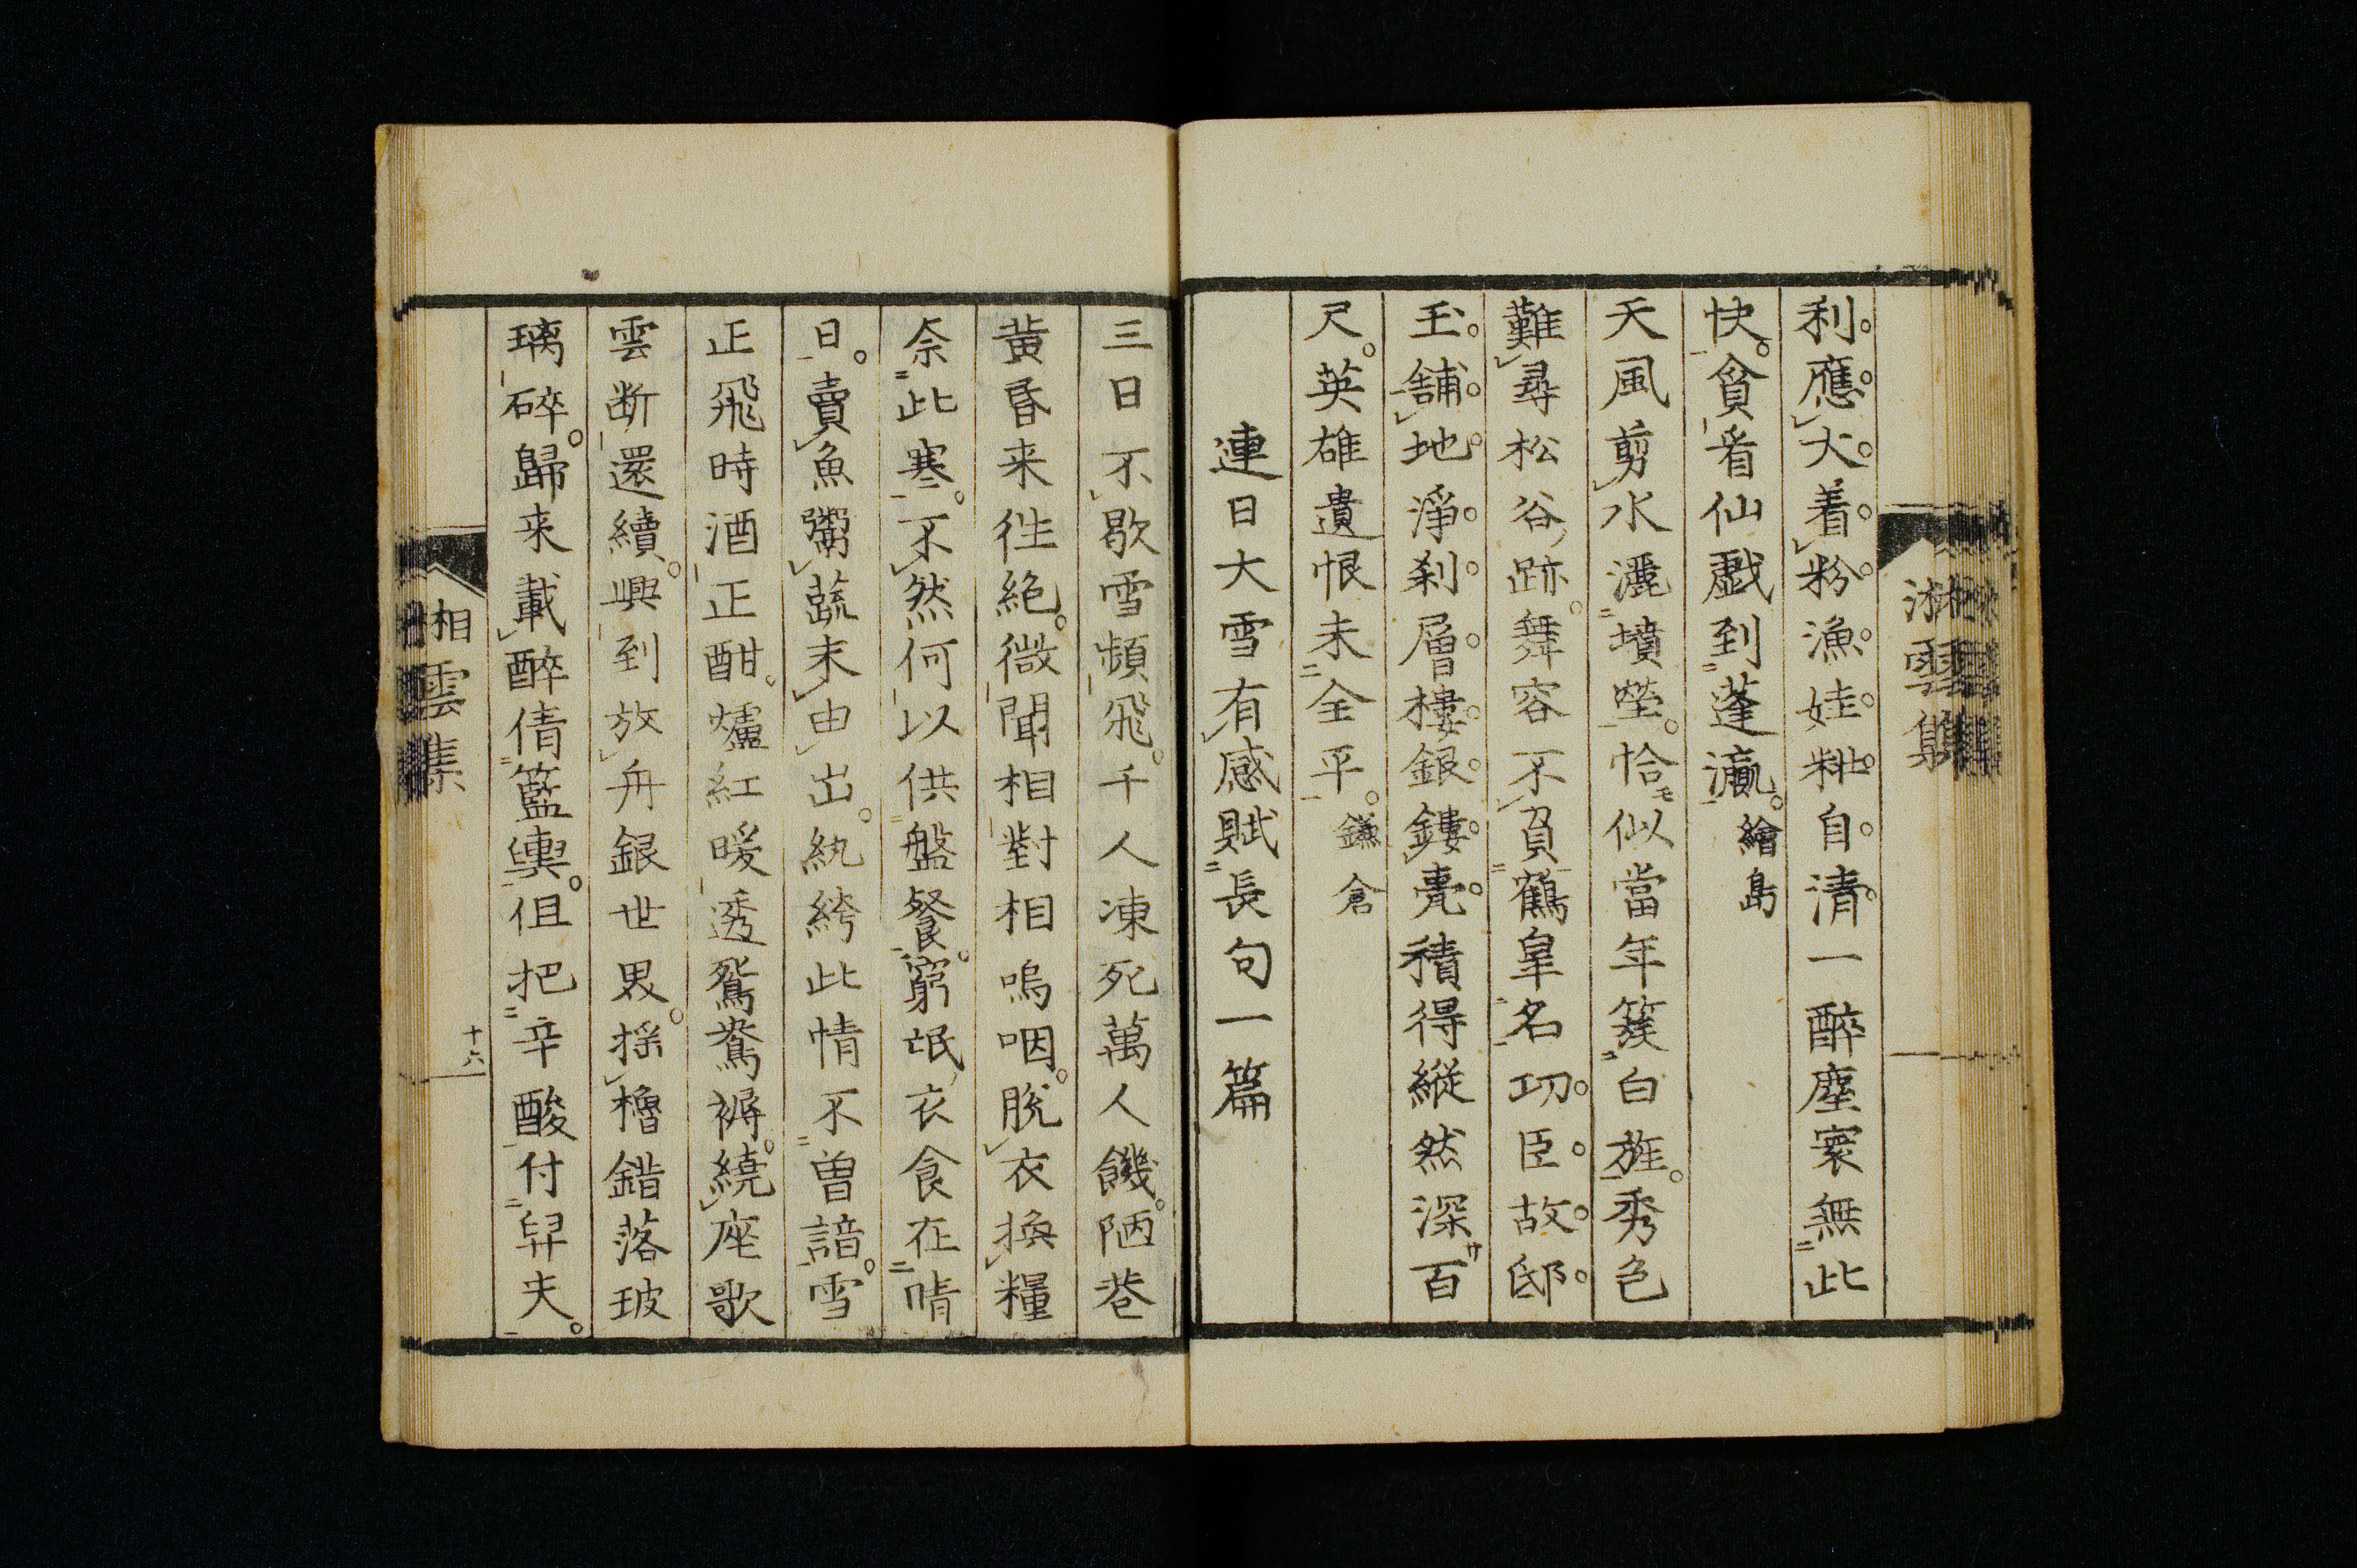 利。應犬。着。粉。漁。娃。粃。自。清。一醉塵寰無此
快。貧看仙戲到蓬瀛。繪島
天風剪水灑墳塋。恰似當年簇白旌。秀色
難尋松谷跡。舞容不負鶴皐名。功。臣。故。邸。
玉。舖。地。淨。刹。層。樓。銀。鏤。甍。積得縱然深百
尺。英雄遺恨未全平。鎌倉
連日大雪有感賦長句一篇
湘雲集
三日不歇雪頻飛。千人凍死萬人饑。陋巷
黄昏来徃絶。微聞相對相嗚咽。脫衣換糧
奈此寒。不然何以供盤餐。窮氓衣食在晴
日。賣魚粥蔬末由出。紈絝此情不曽諳。雪
正飛時酒正酣。爐紅暖透鴛鴦褥。繞座歌
雲断還續。興到放舟銀世界。揺櫓錯落玻
璃碎。歸来載醉倩籃輿。但把辛酸付舁夫。
湘雲集
十六